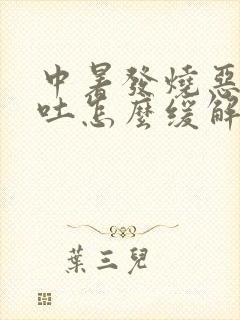 中暑發燒惡
吐怎麼緩解
葉三兒